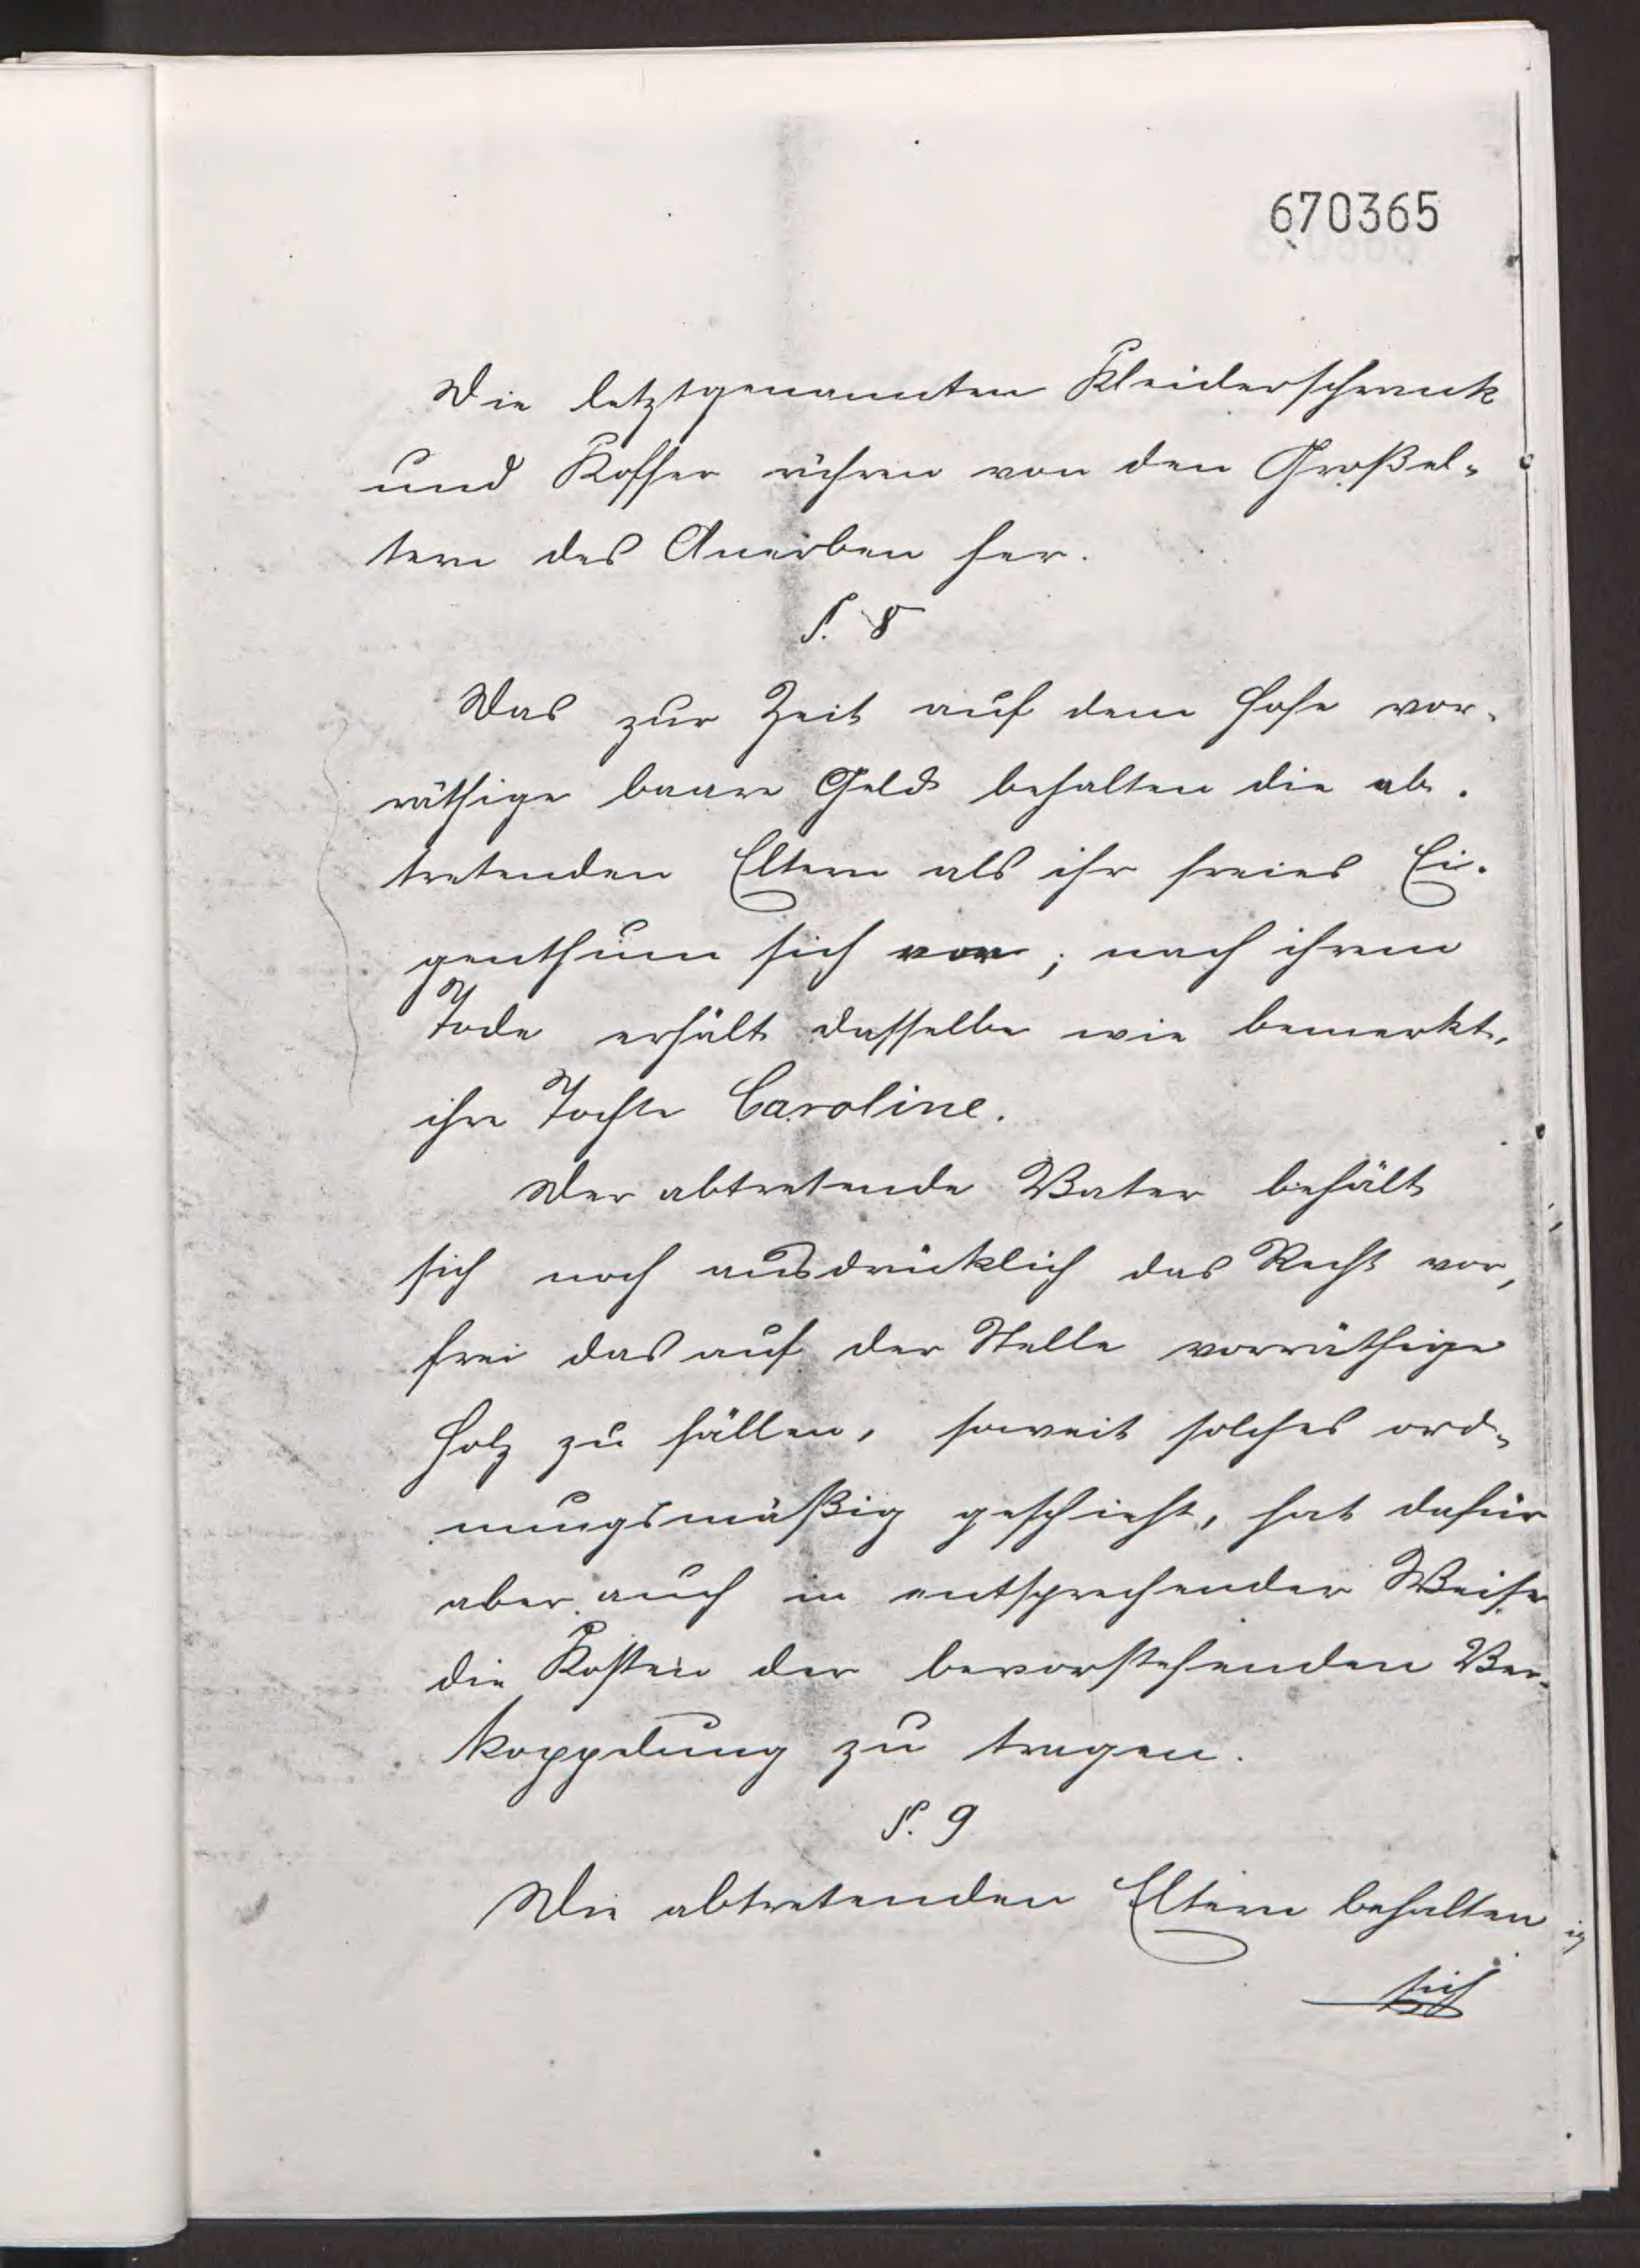 670365
Die letztgenannten Kleiderschrank
und Koffer rühren von den Großel-
tern des Anerben her.
§. 8
Das zur Zeit auf dem Hofe vor-
räthige baare Geld behalten die ab-
tretenden Eltern als ihr freies Ei-
genthum sich vor; nach ihrem
Tode erhält dasselbe wie bemerkt,
ihre Tochter Caroline.
Der abtretende Vater behält
sich noch ausdrücklich das Recht vor,
frei das auf der Stelle vorräthige
Holz zu fällen, soweit solches ord-
nungsmäßig geschieht, hat dafür
aber auch in entsprechender Weise
die Kosten der bevorstehenden Ver-
koppelung zu tragen.
§. 9
Die abtretenden Eltern behalten
sich